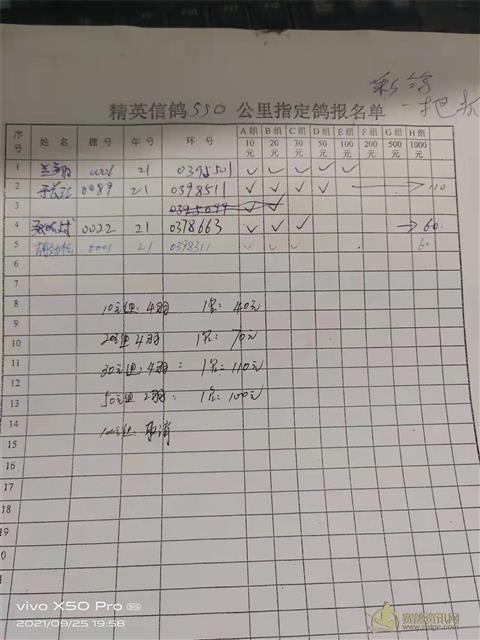 彩鸽
一把抓
精英信鸽550公里指定鸽报名单
序号 姓名 棚号 年号 环号 A组10元 B组20元 C组30元 D组50元 E组100元 F组200元 G组500元 H组1000元
1 0006 21 0395501 ✓ ✓ ✓ ✓ ✓
2 0089 21 0398511 ✓ ✓ ✓ ✓ → 110
3 0395099 ✓ ✓
4 0022 21 0378663 ✓ ✓ ✓ → 60
5 0001 21 0398311 ✓ ✓ ✓ 60
6
7
8 10元组:4羽 1名:40元
9
10 20元组4羽 1名:70元
11 30元组:4羽: 1名:110元
12
13 50元组2羽: 1名:100元
14 100元组:取消
15
16
17
18
vivo X50 Pro 5G
2021/09/25 19:58
赛鸽资讯网